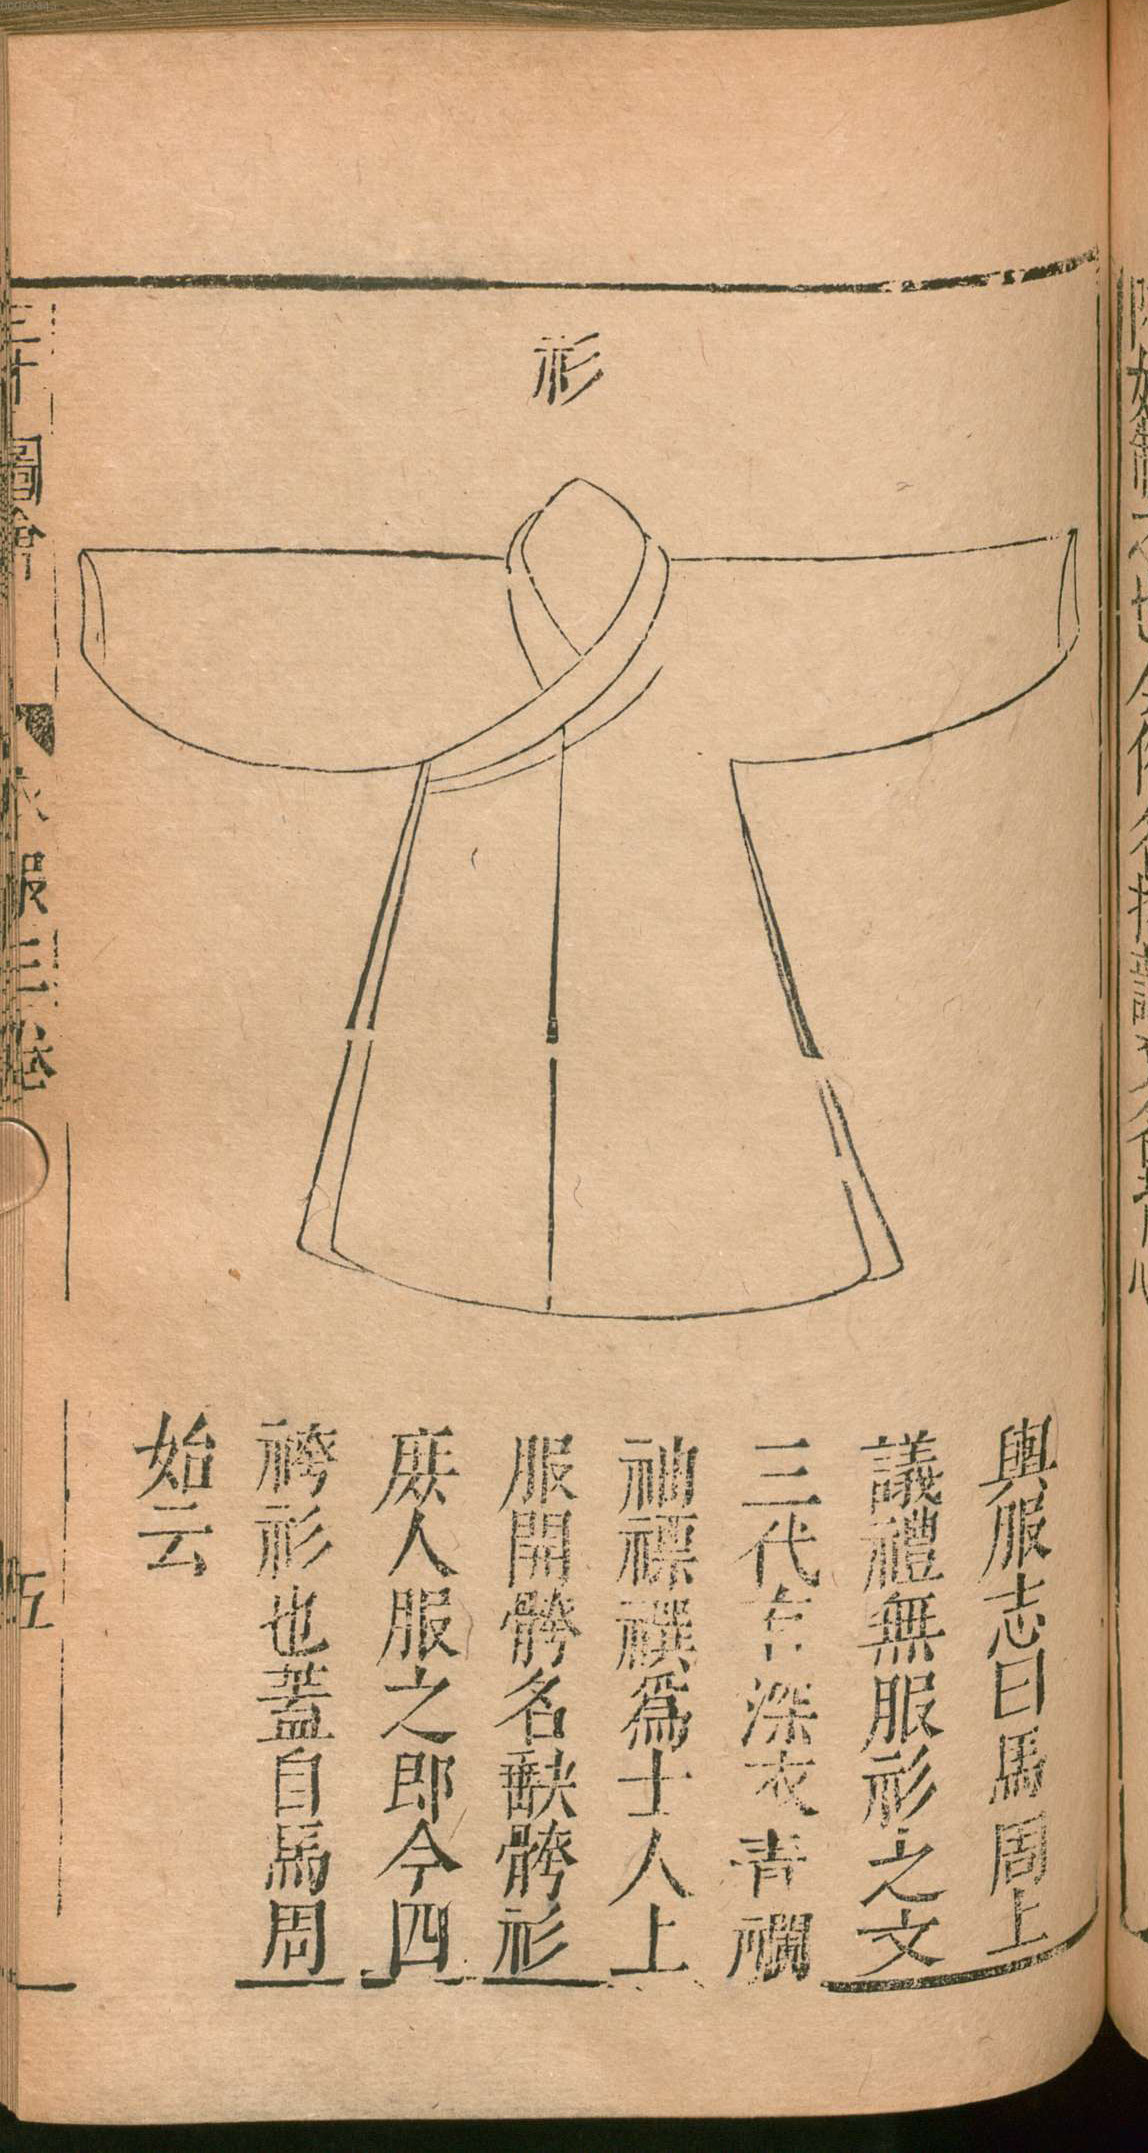 衫
輿服志曰馬周上
議禮無服衫之文
三代有深衣青襴
袖褾襈爲士人上
服開骻名缺骻衫
庶人服之即今四
袴衫也蓋自馬周
始云
三才圖會
衣服三卷
五